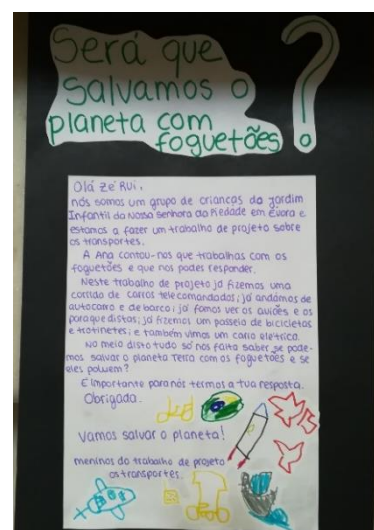 Será que
salvamos o
planeta com
foguetões ?
Olá Zé Rui,
nós somos um grupo de crianças do Jardim
Infantil da Nossa Senhora da Piedade em Évora e
estamos a fazer um trabalho de projeto sobre
os transportes.
A Ana contou-nos que trabalhas com os
foguetões e que nos podes responder.
Neste trabalho de projeto já fizemos uma
corrida de carros telecomandados; já andámos de
autocarro e de barco; já fomos ver os aviões e os
paraquedistas; já fizemos um passeio de bicicletas
e trotinetes; e também vimos um carro elétrico.
No meio disto tudo só nos falta saber se pode-
mos salvar o planeta Terra com os foguetões e se
eles poluem?
É importante para nós termos a tua resposta.
Obrigada.
Vamos salvar o planeta!
meninos do trabalho de projeto
os transportes.